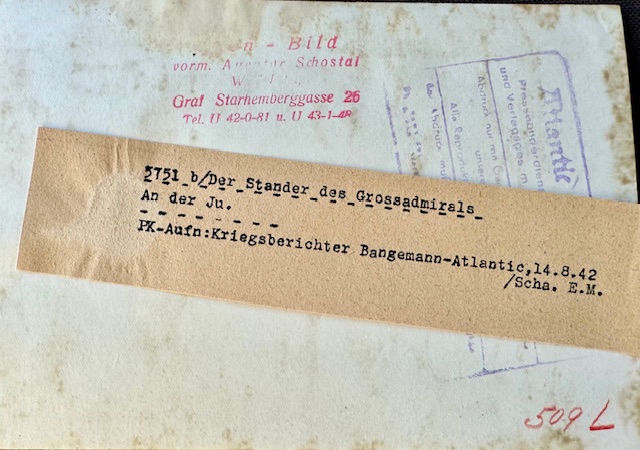 n - Bild
vorm. Agentur Schostal
W
Graf Starhemberggasse 26
Tel. U 42-0-81 u. U 43-1-48
Atlantic
Pressebilderdienst
und Verlagsges. m.
Abdruck nur
Alle
5751 b/Der Stander des Grossadmirals
An der Ju.
PK-Aufn:Kriegsberichter Bangemann-Atlantic,14.8.42
/Scha. E.M.
509 L